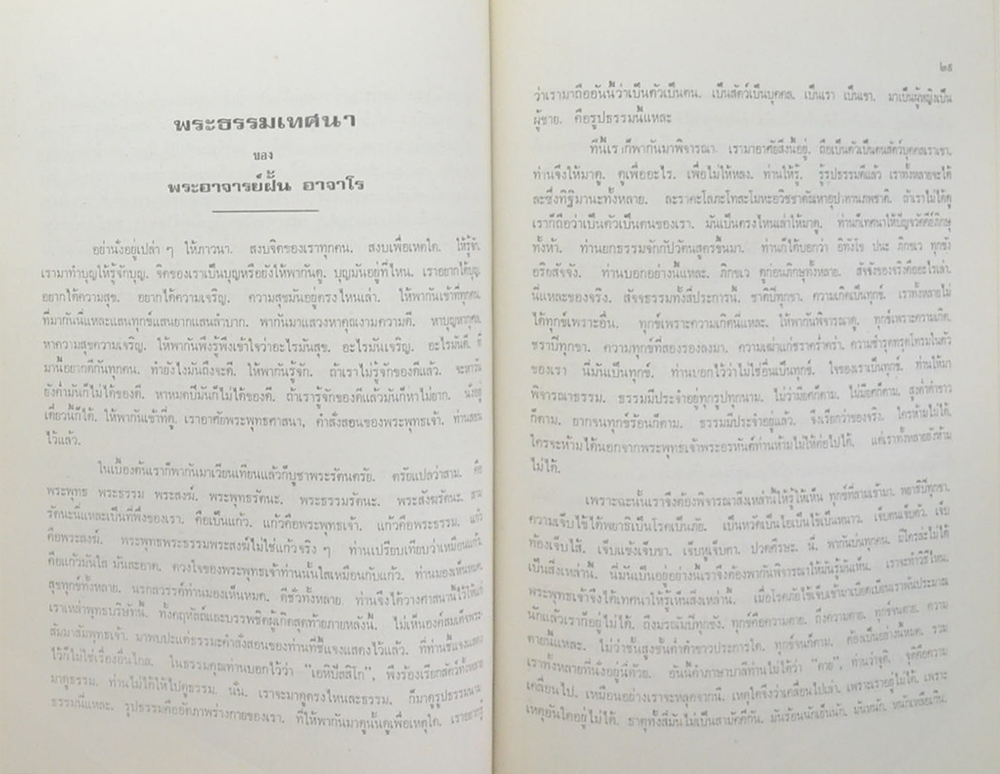 พระธรรมเทศนา
ของ
พระอาจารย์ฝั้น อาจาโร
อย่านั่งอยู่เปล่าๆ ให้ภาวนา. สงบจิตของเราทุกคน. สงบเพื่อเหตุใด. ให้รู้จัก.
เรามาทำบุญให้รู้จักบุญ. จิตของเราเป็นบุญหรือยังให้พากันดู. บุญมันอยู่ที่ไหน. เราอยากได้บุญ
อยากได้ความสุข. อยากได้ความเจริญ. ความสุขมันอยู่ตรงไหนเล่า. ให้พากันเข้าที่ทุกคน
ที่มากันนี่แหละแสนทุกข์แสนยากแสนลำบาก. พากันมาแสวงหาคุณงามความดี. หาบุญหากุศล.
หาความสุขความเจริญ. ให้พากันพึงรู้พึงเข้าใจว่าอะไรมันสุข. อะไรมันเจริญ. อะไรมันดี. ที่
มานี้อยากดีกันทุกคน. ทำยังไงมันถึงจะดี. ให้พากันรู้จัก. ถ้าเราไม่รู้จักของดีแล้ว. จะหาวัน
ยังค่ำมันก็ไม่ได้ของดี. หาหมดปีมันก็ไม่ได้ของดี. ถ้าเรารู้จักของดีแล้วมันก็หาไม่ยาก. นั่งอยู่
เดี๋ยวนี้ก็ได้. ให้พากันเข้าที่ดู. เราอาศัยพระพุทธศาสนา, คำสั่งสอนของพระพุทธเจ้า. ท่านสอน
ไว้แล้ว.
ในเบื้องต้นเราก็พากันมาเวียนเทียนแล้วก็บูชาพระรัตนตรัย. ตรัยแปลว่าสาม. คือ
พระพุทธ พระธรรม พระสงฆ์. พระพุทธรัตนะ. พระธรรมรัตนะ. พระสังฆรัตนะ. สาม
รัตนะนี่แหละเป็นที่พึ่งของเรา. คือเป็นแก้ว. แก้วคือพระพุทธเจ้า. แก้วคือพระธรรม. แก้ว
คือพระสงฆ์. พระพุทธพระธรรมพระสงฆ์ไม่ใช่แก้วจริงๆ ท่านเปรียบเทียบว่าเหมือนแก้ว
คือแก้วมันใส มันสะอาด. ดวงใจของพระพุทธเจ้าท่านนั้นใสเหมือนกับแก้ว. ท่านมองเห็นหมด.
สุขทุกข์ทั้งหลาย. นรกสวรรค์ท่านมองเห็นหมด. ดีชั่วทั้งหลาย. ท่านจึงได้วางศาสนาไว้ให้แก่
เราเหล่าพุทธบริษัทนี้. ทั้งคฤหัสถ์และบรรพชิตผู้เกิดสุดท้ายภายหลังนี้. ไม่เห็นองค์สมเด็จพระ-
สัมมาสัมพุทธเจ้า. มาพบปะแต่ธรรมะคำสั่งสอนของท่านที่ชี้แจงแสดงไว้แล้ว. ที่ท่านชี้แจงแสดง
ไว้ก็ไม่ใช่เรื่องอื่นไกล. ในธรรมคุณท่านบอกไว้ว่า "เอหิปัสสิโก", พึงร้องเรียกสัตว์ทั้งหลาย
มาดูธรรม. ท่านไม่ได้ให้ไปดูธรรม. นั้น. เราจะมาดูตรงไหนละธรรม. ก็มาดูรูปธรรมนาม
ธรรมนี่แหละ. รูปธรรมคืออัตภาพร่างกายของเรา. ที่ให้พากันมาดูนั้นดูเพื่อเหตุใด.
๒๕
ว่าเรามาถืออันนี้ว่าเป็นตัวเป็นตน. เป็นสัตว์เป็นบุคคล. เป็นเรา เป็นเขา. มาเป็นผู้หญิงเป็น
ผู้ชาย. คือรูปธรรมนี้แหละ
ทีนี้เราก็พากันมาพิจารณา. เรามาอาศัยสิ่งนี้อยู่. ถือเป็นตัวเป็นตนสัตว์บุคคลเราเขา.
ท่านจึงให้มาดู. ดูเพื่ออะไร. เพื่อไม่ให้หลง. ท่านให้รู้. รู้รูปธรรมดีแล้ว เราทั้งหลายจะได้
ละซึ่งทิฐิมานะทั้งหลาย. ละราคะโลภะโทสะโมหะอวิชชาตัณหาอุปาทานภพชาติ. ถ้าเราไม่ได้ดู
เราก็ถือว่าเป็นตัวเป็นตนของเรา. มันเป็นตรงไหนเล่าให้มาดู. ท่านก็เทศนาให้ปัญจวัคคีย์ภิกษุ
ทั้งห้า. ท่านยกธรรมจักกัปวัตนสูตรขึ้นมา. ท่านก็ได้บอกว่า อิทังโข ปนะ ภิกขเว ทุกขัง
อริยสัจจัง. ท่านบอกอย่างนี้แหละ. ภิกขเว ดูก่อนภิกษุทั้งหลาย. สัจจังของจริงคืออะไรเล่า.
นี่แหละของจริง. สัจจธรรมทั้งสี่ประการนี้. ชาติปิทุกขา. ความเกิดเป็นทุกข์. เราทั้งหลายไม่
ได้ทุกข์เพราะอื่น. ทุกข์เพราะความเกิดนี่แหละ. ให้พากันพิจารณาดู. ทุกข์เพราะความเกิด.
ชราปิทุกขา. ความทุกข์ที่สองรองลงมา. ความเฒ่าแก่ชราคร่ำคร่า. ความชำรุดทรุดโทรมในตัว
ของเรา นี่มันเป็นทุกข์. ท่านบอกไว้ว่าไม่ใช่อื่นเป็นทุกข์. ใจของเราเป็นทุกข์. ท่านให้มา
พิจารณาธรรม. ธรรมมีประจำอยู่ทุกรูปทุกนาม. ไม่ว่ามีอดก็ตาม. ไม่มีอดก็ตาม. สูงต่ำดำขาว
ก็ตาม. ยากจนทุกข์ร้อนก็ตาม. ธรรมมีประจำอยู่แล้ว. จึงเรียกว่าของจริง. ใครห้ามไม่ได้.
ใครจะห้ามได้นอกจากพระพุทธเจ้าพระอรหันต์ท่านห้ามไม่ให้ต่อไปได้. แต่เราทั้งหลายยังห้าม
ไม่ได้.
เพราะฉะนั้นเราจึงต้องพิจารณาสิ่งเหล่านี้ให้รู้ให้เห็น ทุกข์ที่สามเข้ามา. พยาธิปิทุกขา.
ความเจ็บไข้ได้พยาธิเป็นโรคเป็นภัย. เป็นหวัดเป็นไอเป็นไข้เป็นหนาว. เจ็บตนเจ็บตัว. เจ็บ
ท้องเจ็บไส้. เจ็บแข้งเจ็บขา. เจ็บหูเจ็บตา. ปวดศีรษะ. นี่. พากันบ่นทุกคน. มีใครล่ะไม่ได้
เป็นสิ่งเหล่านี้. นี่มันเป็นอยู่อย่างนี้เราจึงต้องพากันพิจารณาให้มันรู้มันเห็น. เราจะทำวิธีไหน.
พระพุทธเจ้าจึงได้เทศนาให้รู้เห็นสิ่งเหล่านี้. เมื่อโรคภัยไข้เจ็บเข้ามาเบียดเบียนเราพ้นประมาณ
นักแล้วเราก็อยู่ไม่ได้. ถึงมรณัมปิทุกขัง. ทุกข์คือความตาย. ถึงความตาย. ทุกข์จนตาย. ความ
ตายนี้แหละ. ไม่ว่าชั้นสูงชั้นต่ำดำขาวประการใด. ทุกข์จนก็ตาม. ต้องเป็นอย่างนี้หมด. รวม
เราทั้งหลายที่นั่งอยู่นี่ด้วย. อันนี้คำภาษาบาลีท่านไม่ได้ว่า "ตาย", ท่านว่าจุติ. จุติคือความ
เคลื่อนไป. เหมือนอย่างเราจะหลุดจากนี่. เหตุใดจึงว่าเคลื่อนไปเล่า. เพราะเราอยู่ไม่ได้. เพราะ
เหตุอันใดอยู่ไม่ได้. ธาตุทั้งสี่มันไม่เป็นสามัคคีกัน. มันร้อนนักเย็นนัก. มันหนัก. หนักเหลือเกิน.